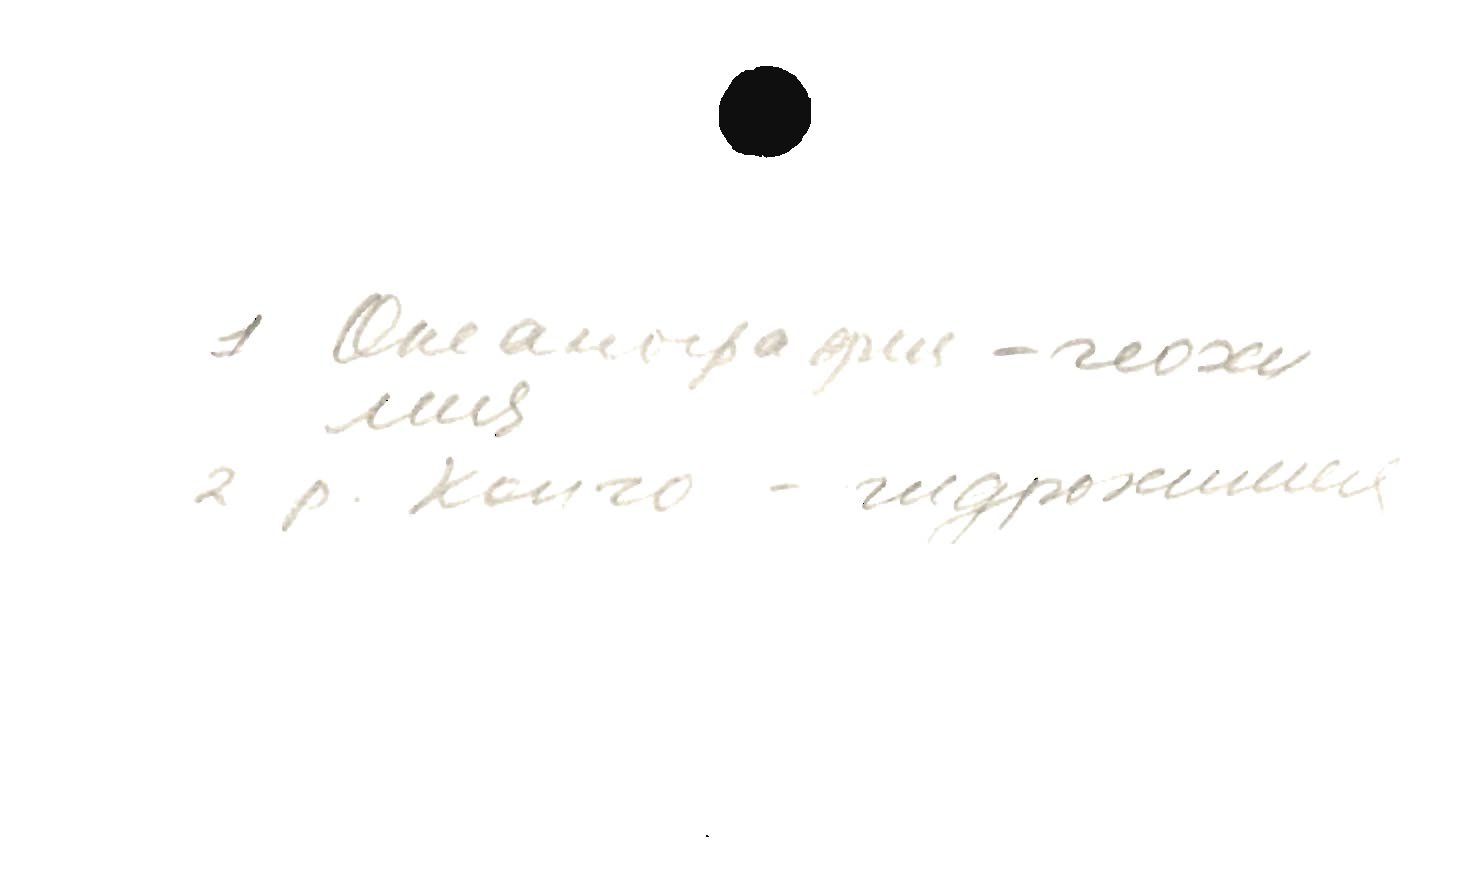 1 Океанографии - геохи
мия
2 р. Конго - гидрохимия